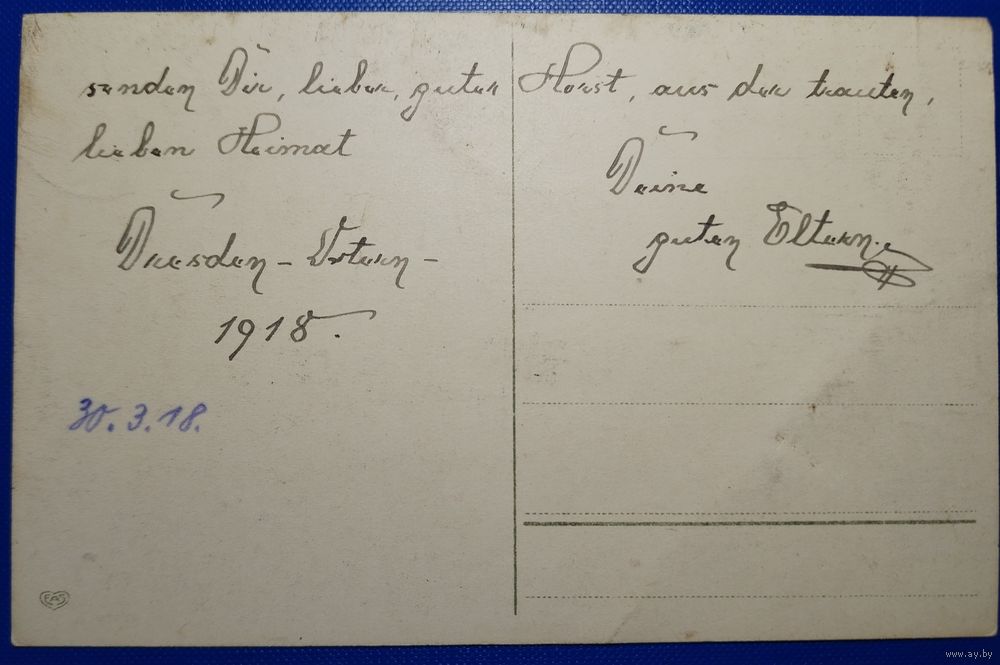 senden Dir, lieber, guter Horst, aus der trauten,
lieben Heimat
Deine
guten Eltern.
Dresden – Ostern –
1918.
30.3.18.
EAS
www.ay.by